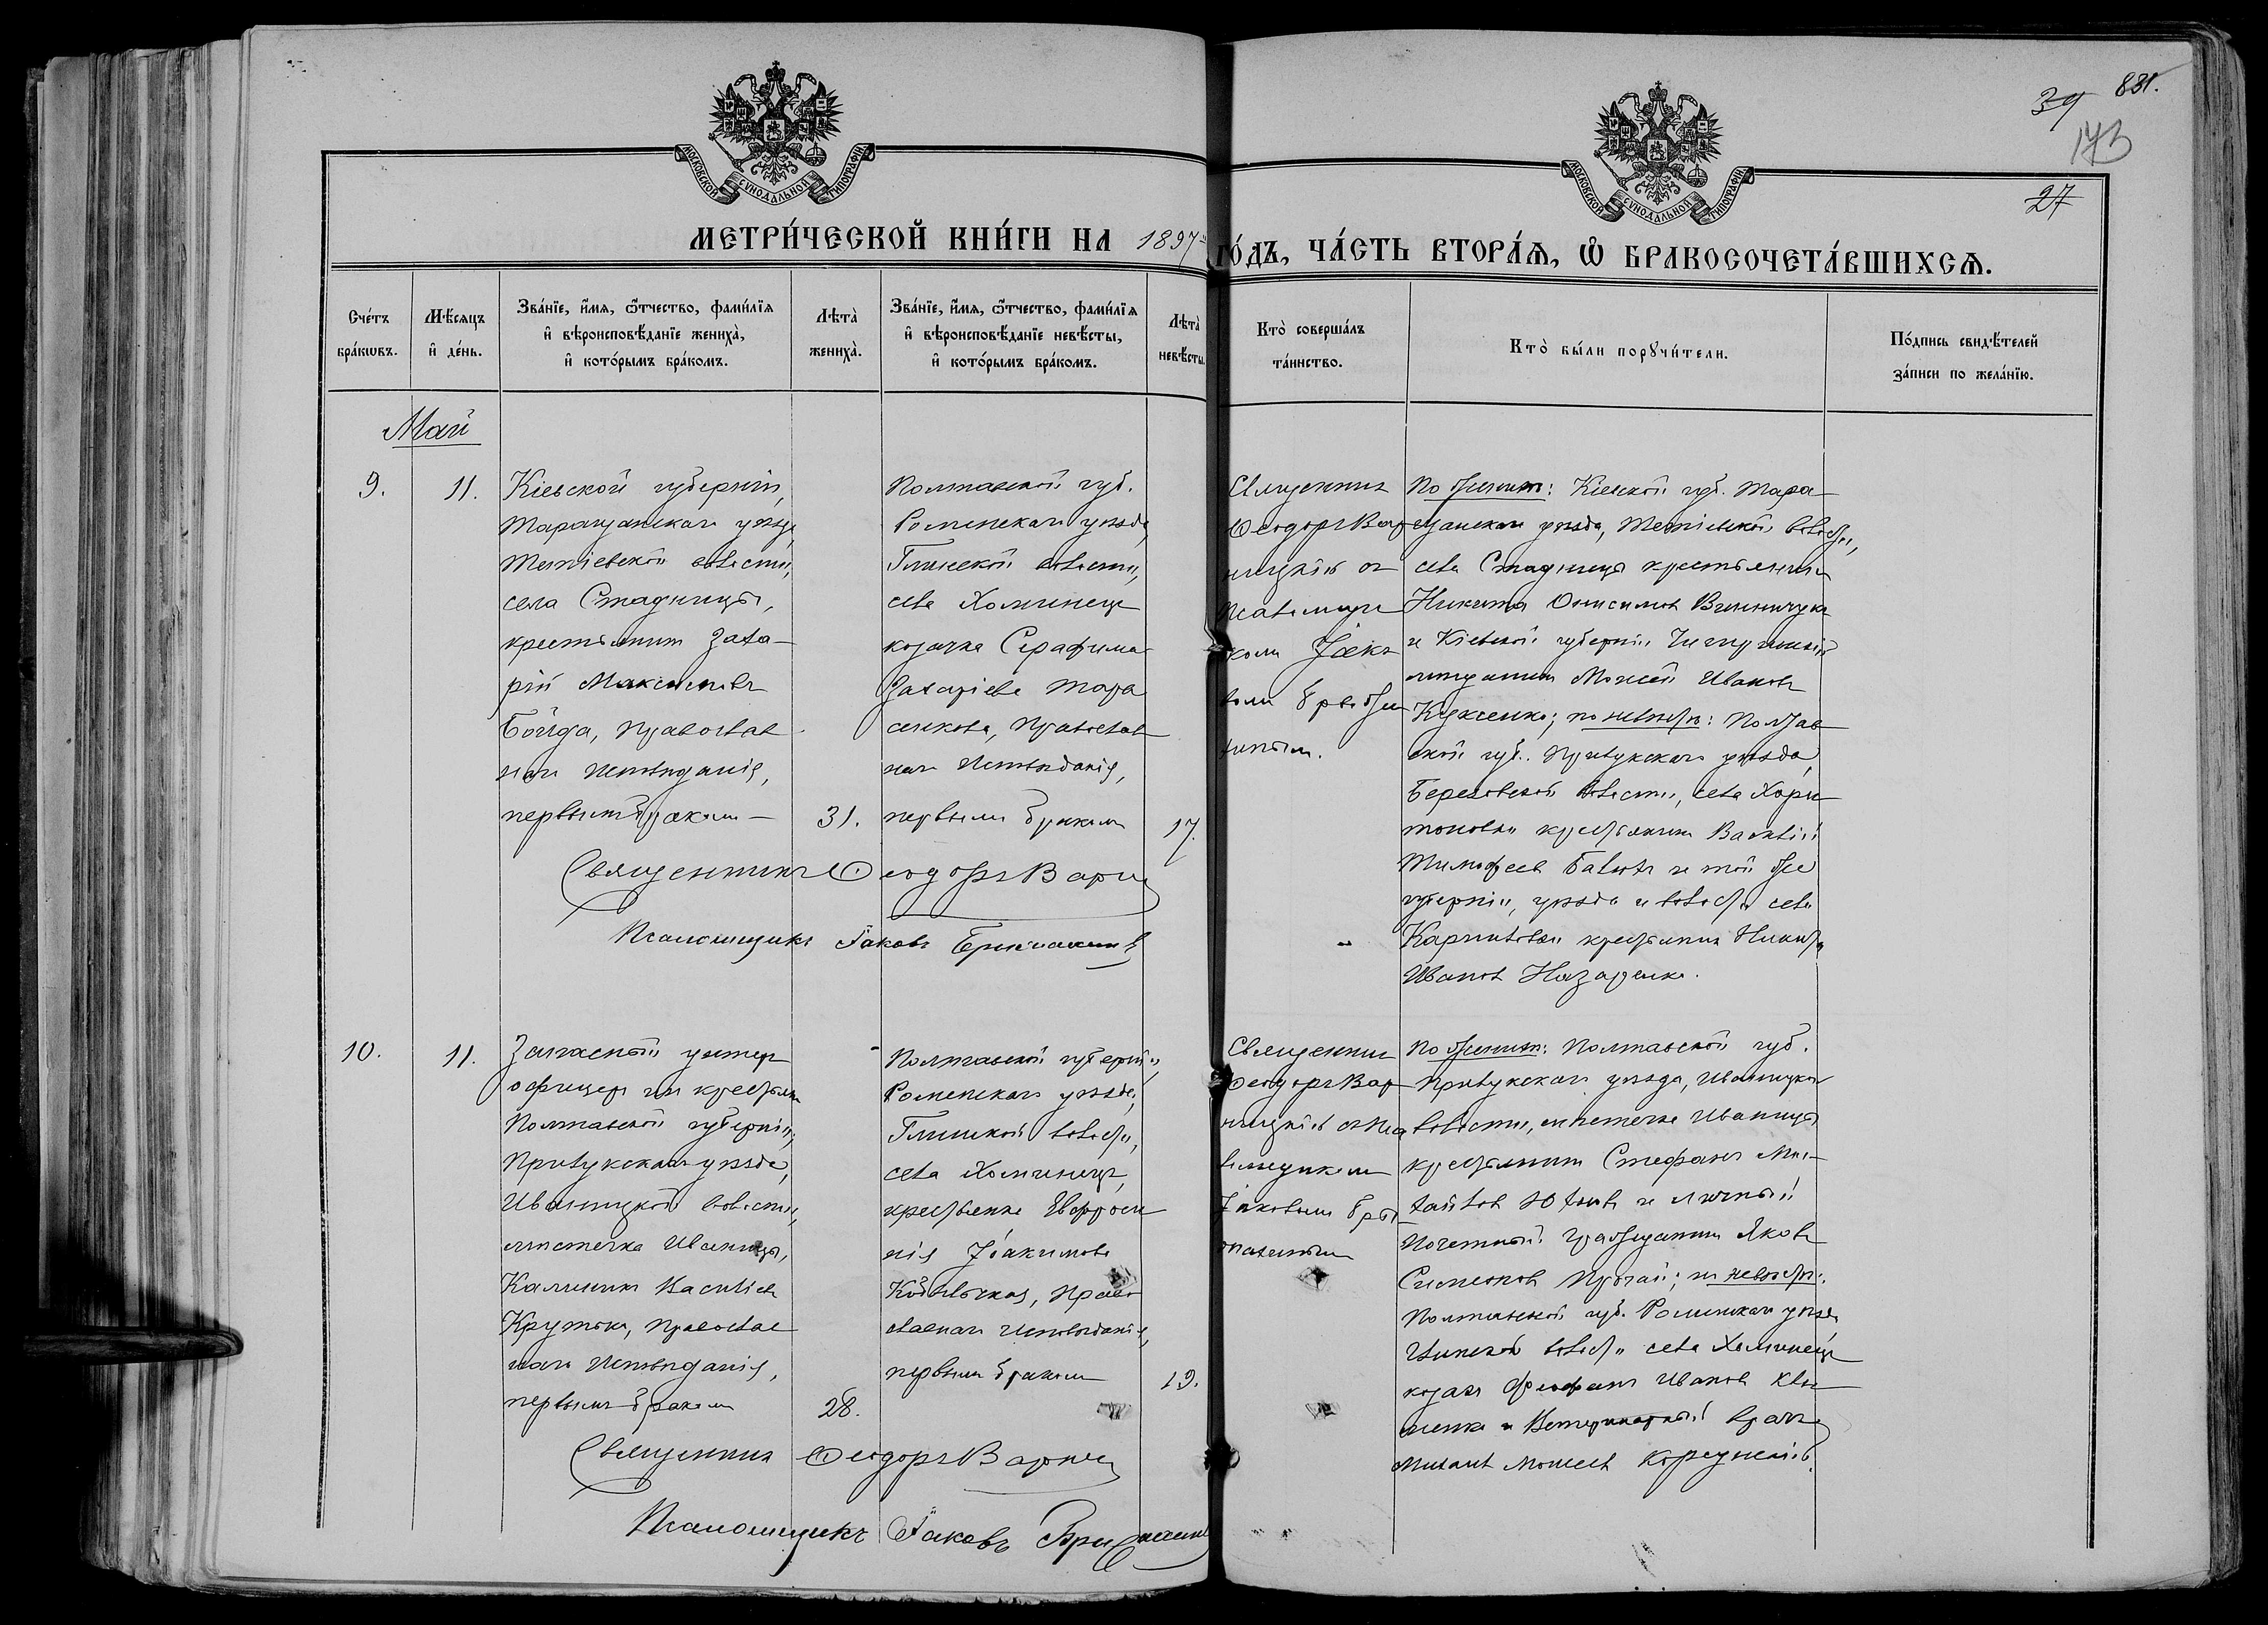 831.
39
173
27
МОСКОВСКОЙ СѴНОДАЛЬНОЙ ТИПОГРАФІИ
МОСКОВСКОЙ СѴНОДАЛЬНОЙ ТИПОГРАФІИ
МЕТРИ́ЧЕСКОЙ КНИ́ГИ НА 1897 ГО́ДЪ, ЧА́СТЬ ВТОРА́Ѧ, Ѽ БРАКОСОЧЕТА́ВШИХСѦ.
Сче́тъ бра́кѡвъ.
Мѣ́сяцъ и҆ де́нь.
Зва́нїе, и҆́мя, ѻ҆́тчество, фами́лїя
и҆ вѣроисповѣ́данїе жениха̀,
и҆ кото́рымъ бра́комъ.
Лѣта̀ жениха̀.
Зва́нїе, и҆́мя, ѻ҆́тчество, фами́лїя
и҆ вѣроисповѣ́данїе невѣ́сты,
и҆ кото́рымъ бра́комъ.
Лѣта̀ невѣ́сты.
Кто̀ соверша́лъ
та́инство.
Кто̀ бы́ли порꙋчи́тели.
По́дпись свидѣ́телей
за́писи по жела́нїю.
Май
9.
11.
Кіевской губерніи,
Таращанскаго уѣзда
Тетіевской волости,
села Стадницы,
крестьянинъ Заха-
рій Максимовъ
Бойда, православ
наго исповѣданія,
первымъ бракомъ
31.
Полтавской губ.
Роменскаго уѣзда,
Глинской волости,
села Хоминецъ
козачка Серафима
Захаріева Тара
сенкова, православ
наго исповѣданія,
первымъ бракомъ
17.
Священникъ
Ѳеодоръ Вар
ницкій съ
псаломщи
комъ Іако
вомъ
По женихѣ: Кіевской губ. Тара-
щанскаго уѣзда, Тетіевской волости,
села Стадницы крестьянинъ
Никита Онисимовъ Винничукъ
и Кіевской губерніи Чигиринскій
мѣщанинъ Моисей Ивановъ
по невѣстѣ: Полтав
ской губ. Прилукскаго уѣзда,
Березовской волости, села Хари
тоновки крестьянинъ Василій
Тимофеевъ и той же
губерніи, уѣзда и волости села
Карпиловки крестьянинъ Никита
Ивановъ Назаренко.
Священникъ Ѳеодоръ Варниц
Псаломщикъ Іаковъ
10.
11.
Запасный унтеръ
офицеръ изъ крестьянъ
Полтавской губерніи,
Прилукскаго уѣзда,
Иваницкой волости,
мѣстечка Иваницы,
Калиникъ Васильевъ
Крутько, православ
наго исповѣданія,
первымъ бракомъ
28.
Полтавской губерніи,
Роменскаго уѣзда,
Глинской волости,
села Хоминецъ,
крестьянка Евфроси
нія Іоакимова
право
славнаго исповѣданія,
первымъ бракомъ
19.
Священникъ
Ѳеодоръ Вар
ницкій съ пса
ломщикомъ
Іаковомъ
По женихѣ: Полтавской губ.
Прилукскаго уѣзда, Иваницкой
волости, мѣстечка Иваницы
крестьянинъ Стефанъ Ми-
хайловъ и личный
почетный гражданинъ Яковъ
Симеоновъ по невѣстѣ:
Полтавской губ. Роменскаго уѣзда
Глинской волости села Хоминецъ
козакъ Феофанъ Ивановъ
и Ветеринарный врачъ
Михаилъ Моисеевъ
Священникъ Ѳеодоръ Варниц
Псаломщикъ Іаковъ